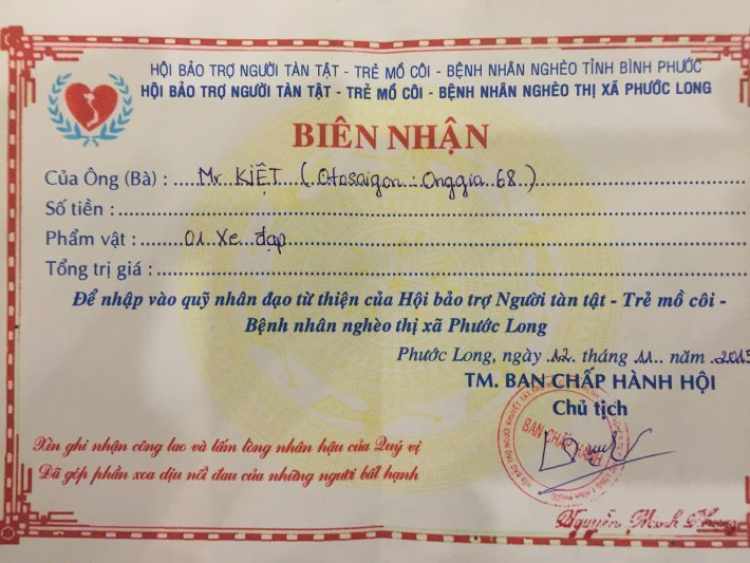 HỘI BẢO TRỢ NGƯỜI TÀN TẬT - TRẺ MỒ CÔI - BỆNH NHÂN NGHÈO TỈNH BÌNH PHƯỚC
HỘI BẢO TRỢ NGƯỜI TÀN TẬT - TRẺ MỒ CÔI - BỆNH NHÂN NGHÈO THỊ XÃ PHƯỚC LONG
BIÊN NHẬN
Của Ông (Bà) : Mr. KIỆT ( Otosaigon : Onggia 68 )
Số tiền :
Phẩm vật : 01 Xe đạp
Tổng trị giá :
Để nhập vào quỹ nhân đạo từ thiện của Hội bảo trợ Người tàn tật - Trẻ mồ côi -
Bệnh nhân nghèo thị xã Phước Long
Phước Long, ngày 12 tháng 11 năm 2015
TM. BAN CHẤP HÀNH HỘI
Chủ tịch
BAN CHẤP HÀNH
Xin ghi nhận công lao và tấm lòng nhân hậu của Quý vị
Đã góp phần xoa dịu nỗi đau của những người bất hạnh
Nguyễn Minh